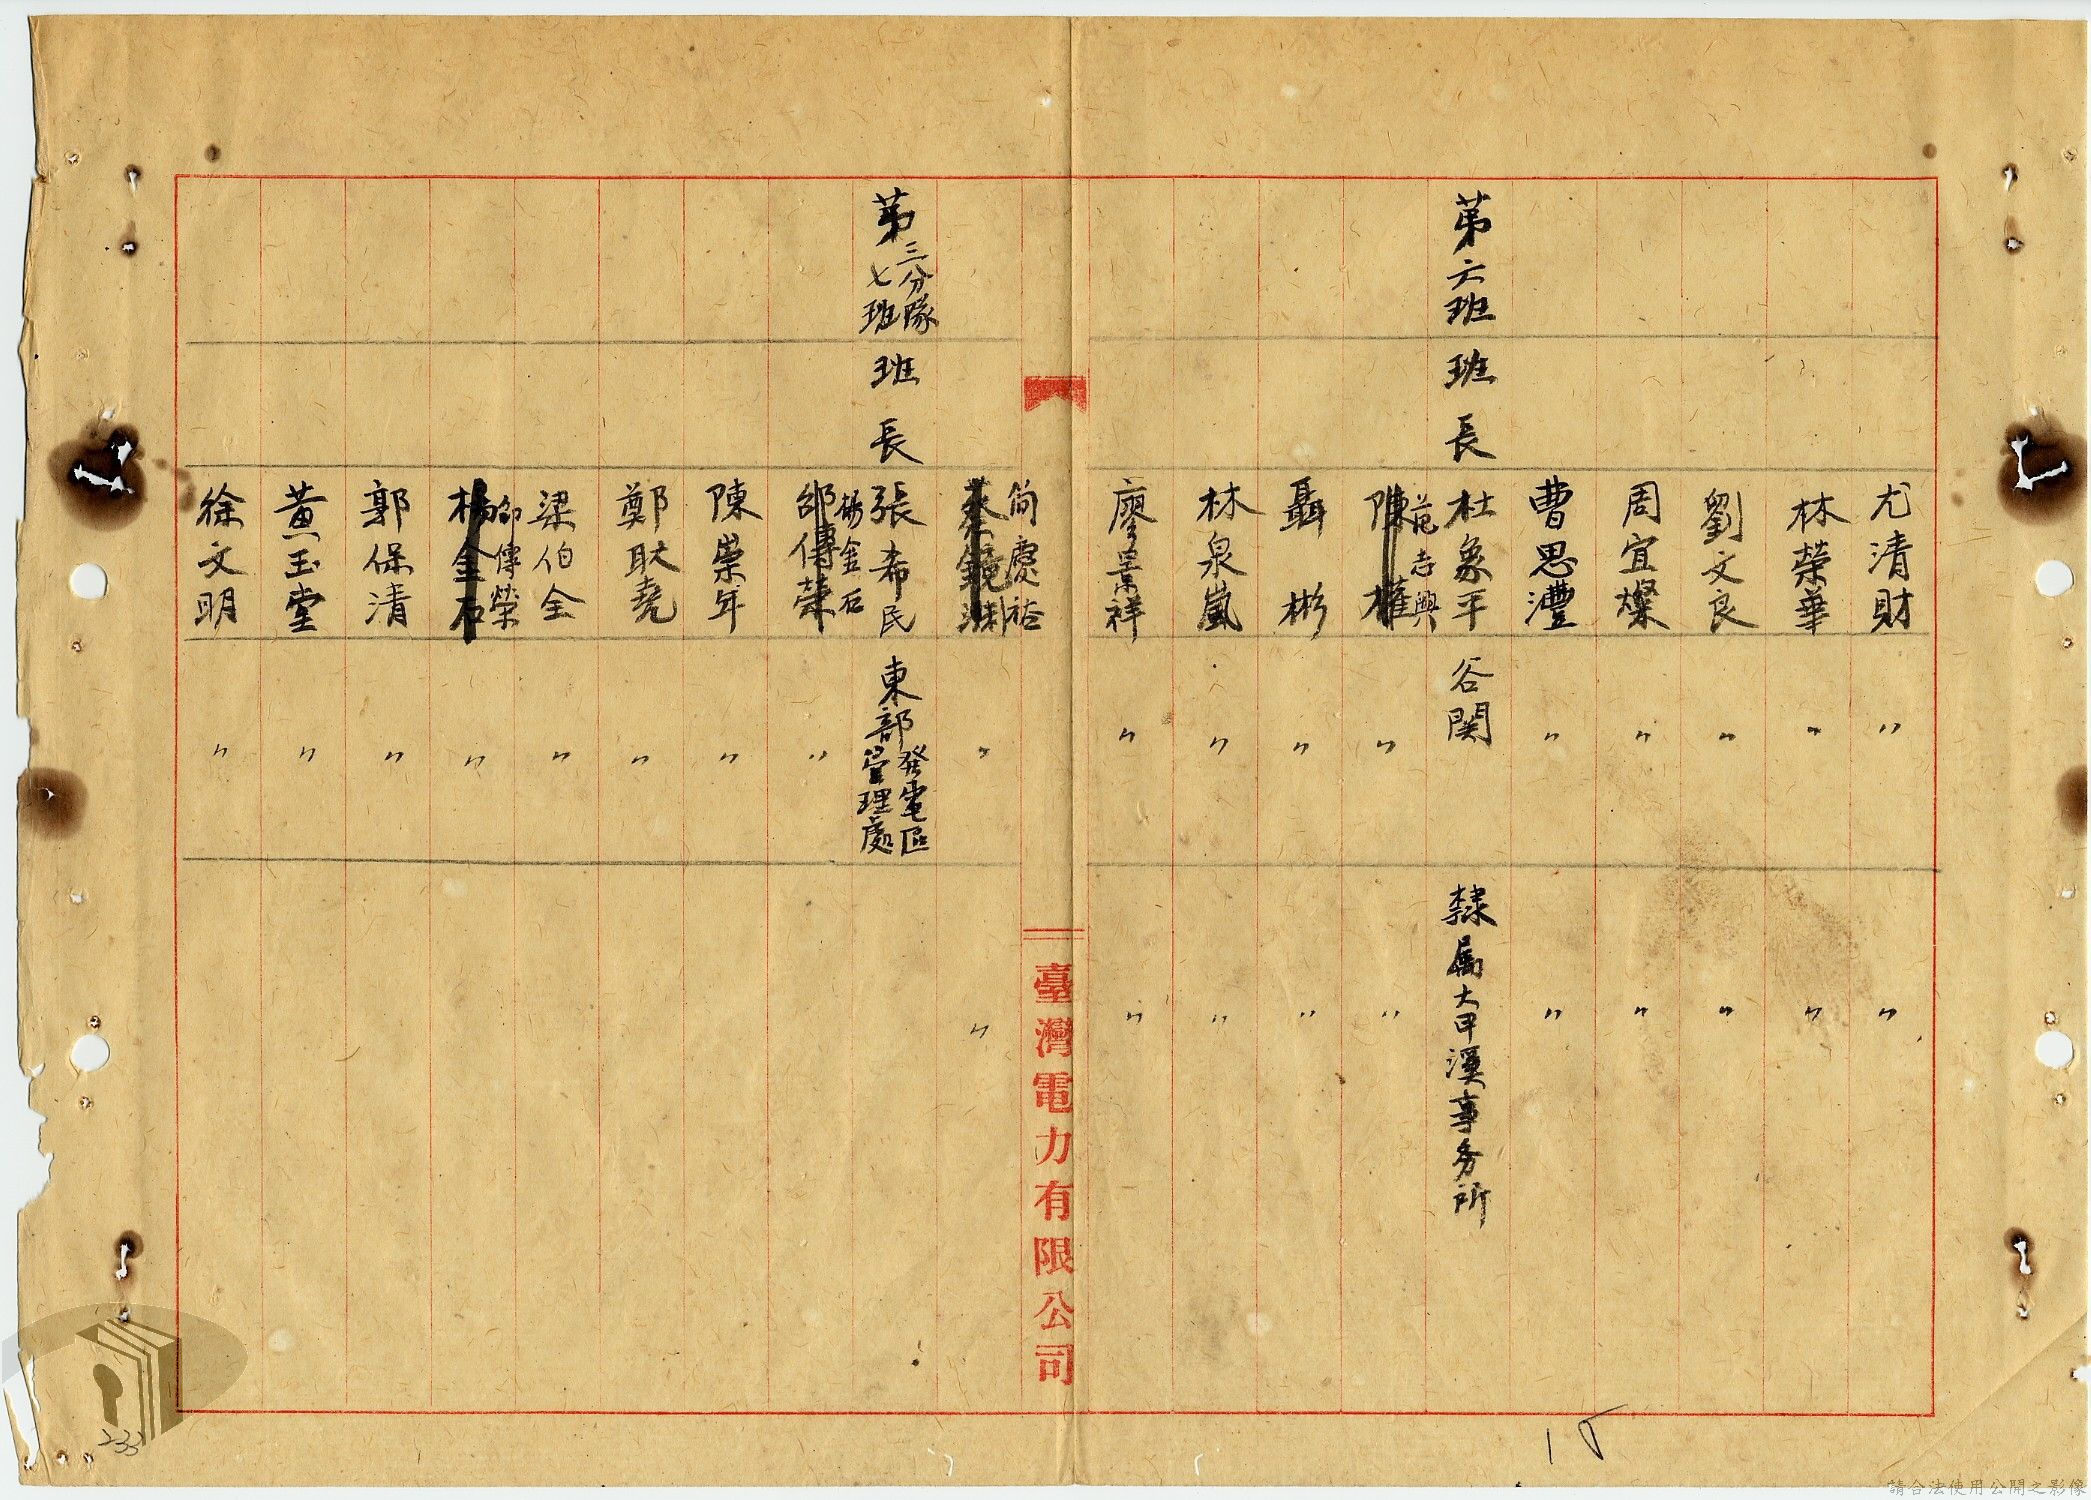 尤清財 〃 〃
林榮華 〃 〃
劉文良 〃 〃
周宜燦 〃 〃
曹思灃 〃 〃
第六班 班長 杜象平 谷関 隸屬大甲溪事务所
范志興
陳權 〃 〃
聶彬 〃 〃
林泉嵐 〃 〃
廖景祥 〃 〃
臺灣電力有限公司
簡慶裕
蔡鏡淵 〃 〃
第三分隊七班 班長 張希民 東部發電區管理處
楊金石
邵傳榮 〃
陳崇年 〃
鄭耿堯 〃
梁伯全 〃
邵傳榮
楊金石 〃
郭保清 〃
黃玉堂 〃
徐文明 〃
15
233
請合法使用公開之影像